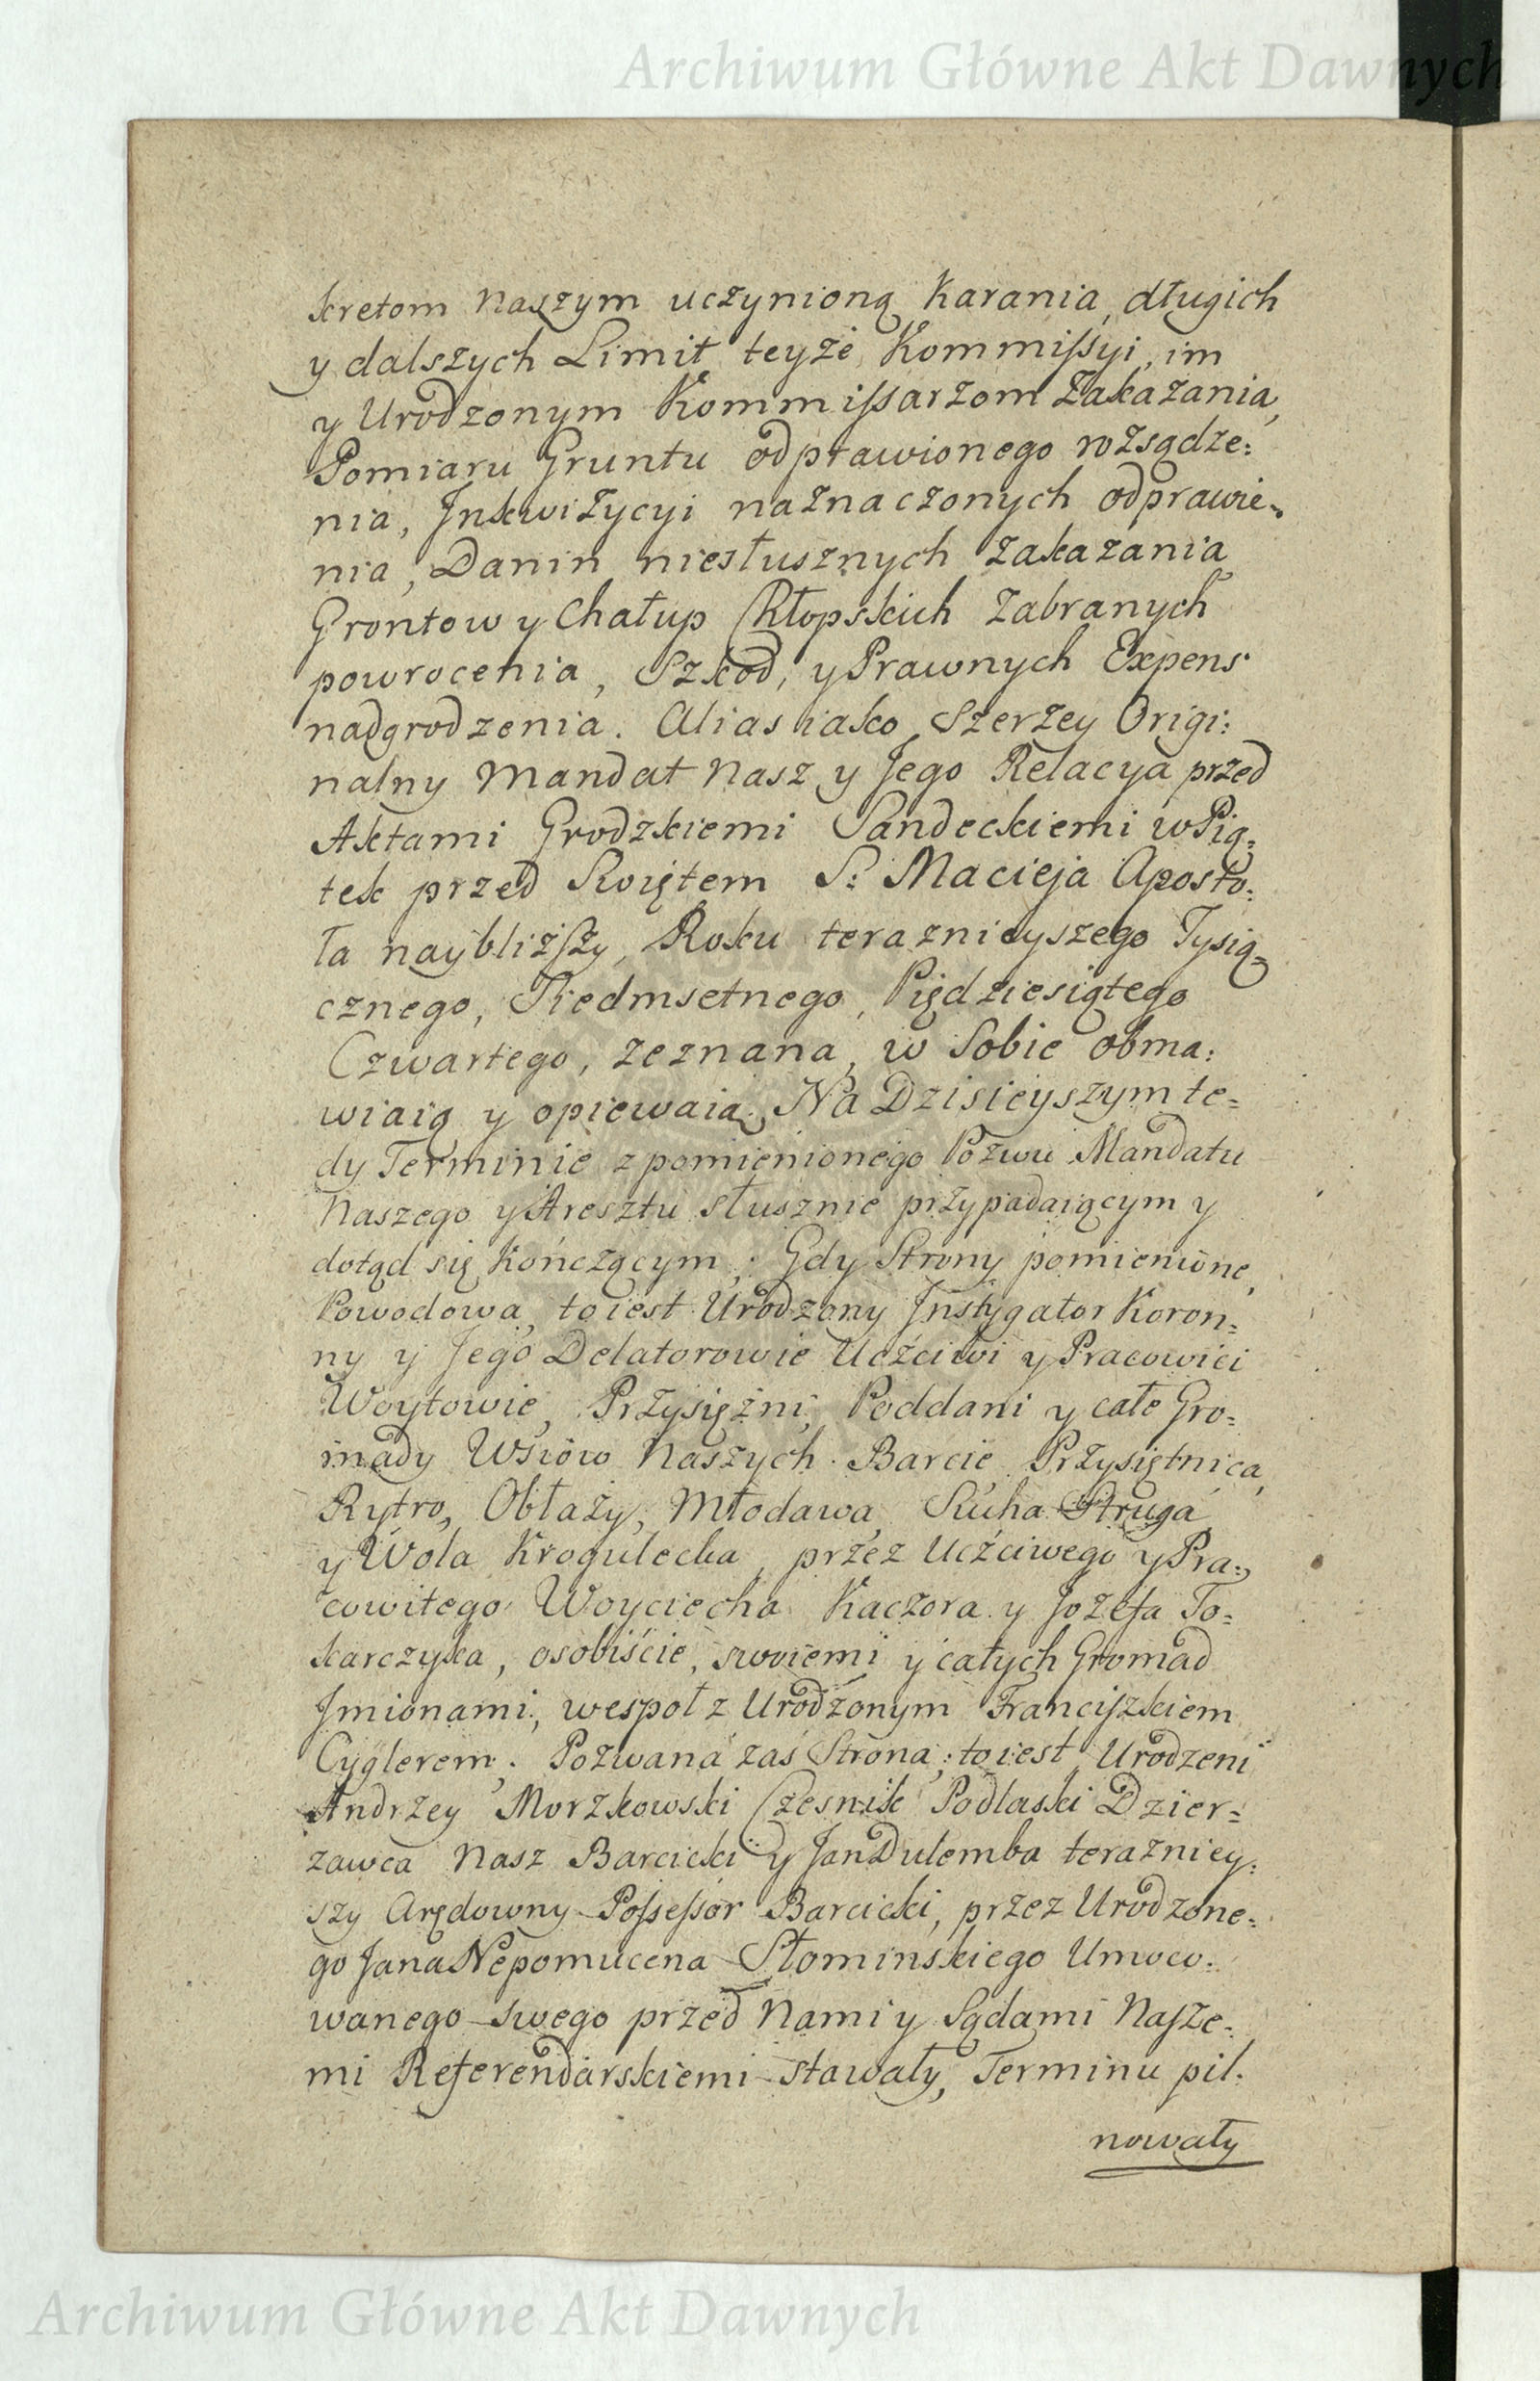 Archiwum Główne Akt Dawnych
kretom Naszym uczynioną Karania, długich
y dalszych Limit teyże Kommissyi, im
y Urodzonym Kommissarzom Zakazania,
Pomiaru Gruntu odprawionego rozsądze:
nia, Inkwizycyi naznaczonych odprawie-
nia, Danin niesłusznych zakazania
Grontow y Chałup Chłopskich zabranych
powrocenia, Szkod, y Prawnych Expens
nadgrodzenia. Alias iako szerzey Origi:
nalny Mandat Nasz y Jego Relacya przed
Aktami Grodzkiemi Sandeckiemi w Pią=
tek przed Swiętem S: Macieja Aposto:
ła naybliższy, Roku teraznieyszego Tysią=
cznego, Siedmsetnego, Piędziesiątego
Czwartego, zeznana, w Sobie obma:
wiaią y opiewaią. Na Dzisieyszym te=
dy Terminie z pomienionego Pozwu Mandatu
Naszego y Aresztu słusznie przypadaiącym y
dotąd się kończącym; Gdy Strony pomienione,
Powodowa, to iest Urodzony Instygator Koron=
ny y Jego Delatorowie Uczciwi y Pracowici
Woytowie, Przysiężni, Poddani y całe Gro=
mady Wsiow Naszych Barcie Przysietnica,
Rytro, Obłazy, Młodawa, Sucha Struga
y Wola Krogulecka, przez Uczciwego y Pra=
cowitego Woyciecha Kaczora y Jozefa To=
karczyka, osobiście, swoiemi y całych Gromad
Jmionami, wespoł z Urodzonym Franciszkiem
Cyglerem. Pozwana zaś Strona; to iest Urodzeni
Andrzey Morzkowski Czesnik Podlaski Dzier=
zawca Nasz Barcicki y Jan Dulemba terazniey:
szy Arędowny Possessor Barcicki, przez Urodzone=
go Jana Nepomucena Słominskiego Umoco:
wanego swego przed Nami y Sądami Nasze-
mi Referendarskiemi stawały, Terminu pil:
nowały
Archiwum Główne Akt Dawnych